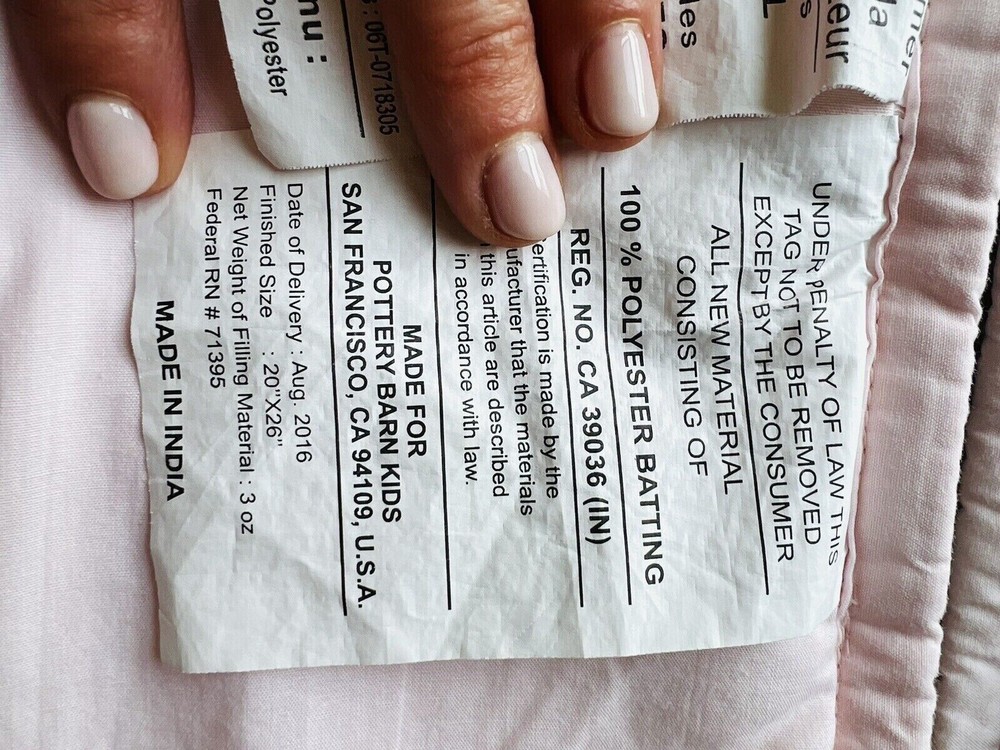 UNDER PENALTY OF LAW THIS
TAG NOT TO BE REMOVED
EXCEPT BY THE CONSUMER
ALL NEW MATERIAL
CONSISTING OF
100 % POLYESTER BATTING
REG. NO. CA 39036 (IN)
ertification is made by the
ufacturer that the materials
this article are described
in accordance with law.
MADE FOR
POTTERY BARN KIDS
SAN FRANCISCO, CA 94109, U.S.A.
Date of Delivery : Aug. 2016
Finished Size : 20"X26"
Net Weight of Filling Material : 3 oz
Federal RN # 71395
MADE IN INDIA
eur
les
: 06T-0718305
nu :
Polyester